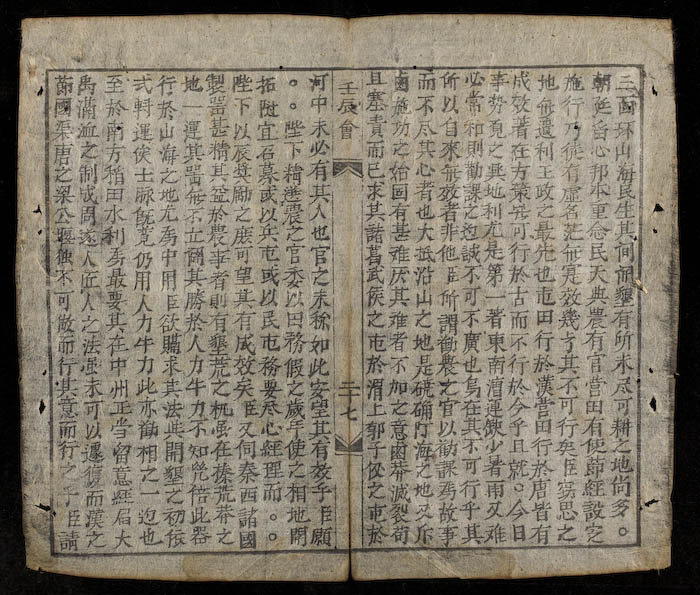 三面环山海民生其间開墾有所未尽可耕之地尙多。
朝廷爲心邦本重念民天典農有官营田有使節經設定
施行乃徒有虛名茫無寔效幾乎其不可行矣臣窃思之
地無遺利王政之最先也屯田行於漢营田行於唐皆有
成效著在方策豈可行於古而不行於今乎且就。今日
事势負之興地利尤是第一著東南漕運缺少暑雨又难
必常和則勸課之迨誠不可不廣也烏在其不可行乎其
所以自来無效者非他臣所謂勸農之官以勸課爲故事
而不尽其心者也大抵沿山之地是硗确汀海之地又斥
鹵施功之始固有甚难厌其难者不加之意鹵莽滅裂苟
且塞責而已求其諸葛武侯之屯於渭上郭子仪之屯於
壬辰會
二十七
河中未必有其人也官之未称如此安望其有效乎臣願
。。陛下精選農之官委以田務假之歲年使之相地開
拓随宜召募或以兵屯或以民屯務要尽心經理而。。
陛下以辰奬勵之庶可望其有成效矣臣又伺泰西諸國
製噐甚精其益於農事者則有墾荒之机虽在榛荒莽之
地一運其噐無不立闢其勝於人力牛力不知㡬倍此器
行於山海之地尤爲中用臣欲購求其法与開墾之初依
式轉運俟土脉旣荒仍用人力牛力此亦勸相之一迨也
至於南方稻田水利爲最要其在中州正当留意經眉大
禹溝洫之制成周遂人匠人之法虽未可以遽復而漢之
莭國渠唐之梁公堰独不可倣而行其意而行之乎臣請